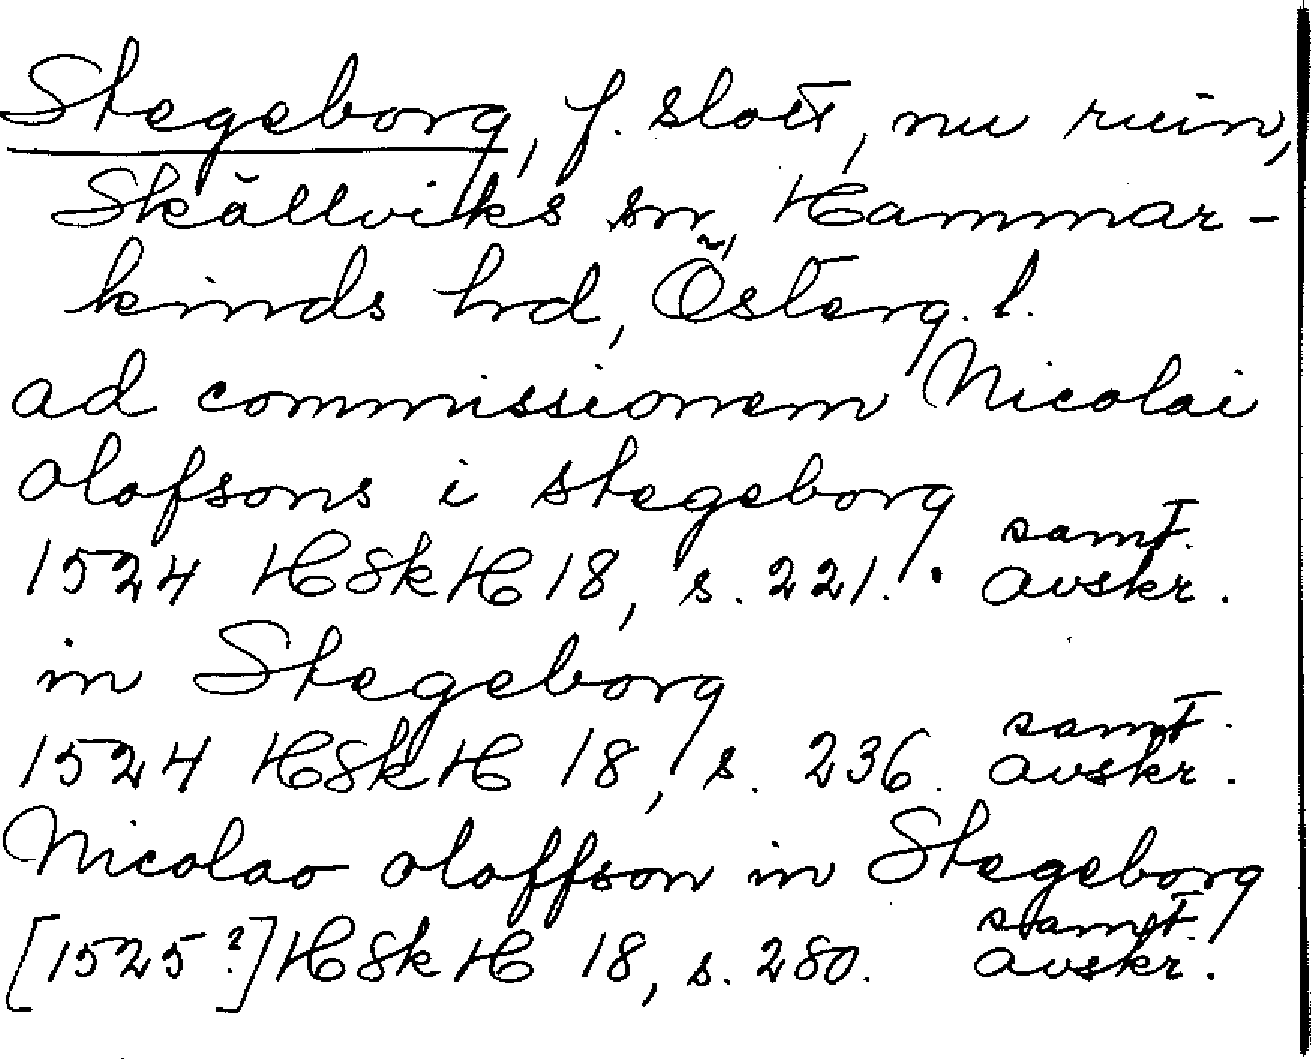 Stegeborg, f. slott, nu ruin,
Skällviks sn, Hammar-
kinds hd, Österg. l.
ad commissionem Nicolai
olofsons i stegeborg
1524 HSkH 18, s. 221. samt. avskr.
in Stegeborg
1524 HSkH 18, s. 236. samt. avskr.
Nicolao oloffson in Stegeborg
[1525?] HSkH 18, s. 280. samt. avskr.